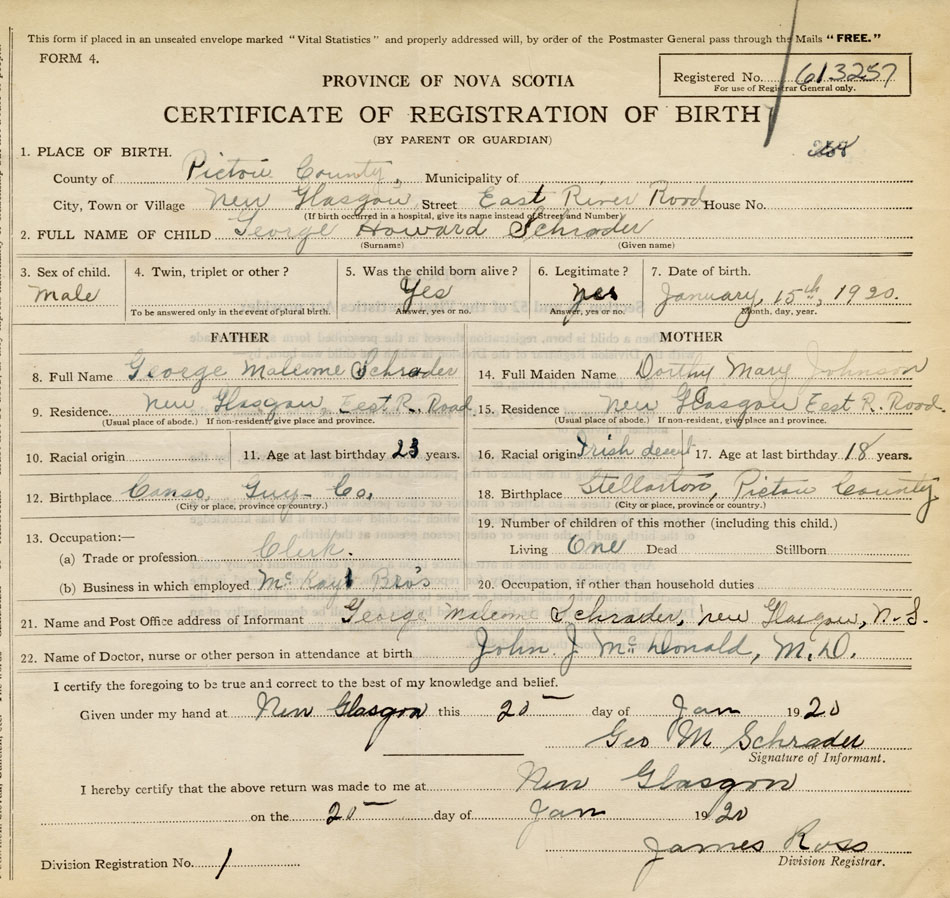 This form if placed in an unsealed envelope marked "Vital Statistics" and properly addressed will, by order of the Postmaster General pass through the Mails "FREE."
FORM 4.
Registered No. 613257
For use of Registrar General only.
PROVINCE OF NOVA SCOTIA
CERTIFICATE OF REGISTRATION OF BIRTH
(BY PARENT OR GUARDIAN)
1. PLACE OF BIRTH.
County of Pictou County, Municipality of
City, Town or Village New Glasgow Street East River Road House No.
(If birth occurred in a hospital, give its name instead of Street and Number)
2. FULL NAME OF CHILD George Howard Schrader
(Surname) (Given name)
3. Sex of child. 4. Twin, triplet or other? 5. Was the child born alive? 6. Legitimate? 7. Date of birth.
Male Yes yes January, 15th, 1920.
To be answered only in the event of plural birth. Answer, yes or no. Answer, yes or no. Month, day, year.
FATHER MOTHER
8. Full Name George Malcome Schrader 14. Full Maiden Name Dorthy Mary Johnson
9. Residence. New Glasgow East R. Road 15. Residence New Glasgow East R. Road.
(Usual place of abode.) If non-resident, give place and province. (Usual place of abode.) If non-resident, give place and province.
10. Racial origin 11. Age at last birthday 23 years. 16. Racial origin Irish decent 17. Age at last birthday 18 years.
12. Birthplace Canso, Guy- Co, 18. Birthplace Stellarton, Pictou County,
(City or place, province or country.) (City or place, province or country.)
13. Occupation:— 19. Number of children of this mother (including this child.)
(a) Trade or profession Clerk. Living One Dead Stillborn
(b) Business in which employed McKay Bro's 20. Occupation, if other than household duties
21. Name and Post Office address of Informant George Malcome Schrader, New Glasgow, N.S.
22. Name of Doctor, nurse or other person in attendance at birth John J. McDonald, M.D.
I certify the foregoing to be true and correct to the best of my knowledge and belief.
Given under my hand at New Glasgow this 20 day of Jan 1920
Geo M Schrader
Signature of Informant.
I hereby certify that the above return was made to me at New Glasgow
on the 20 day of Jan 1920
James Ross
Division Registrar.
Division Registration No. 1